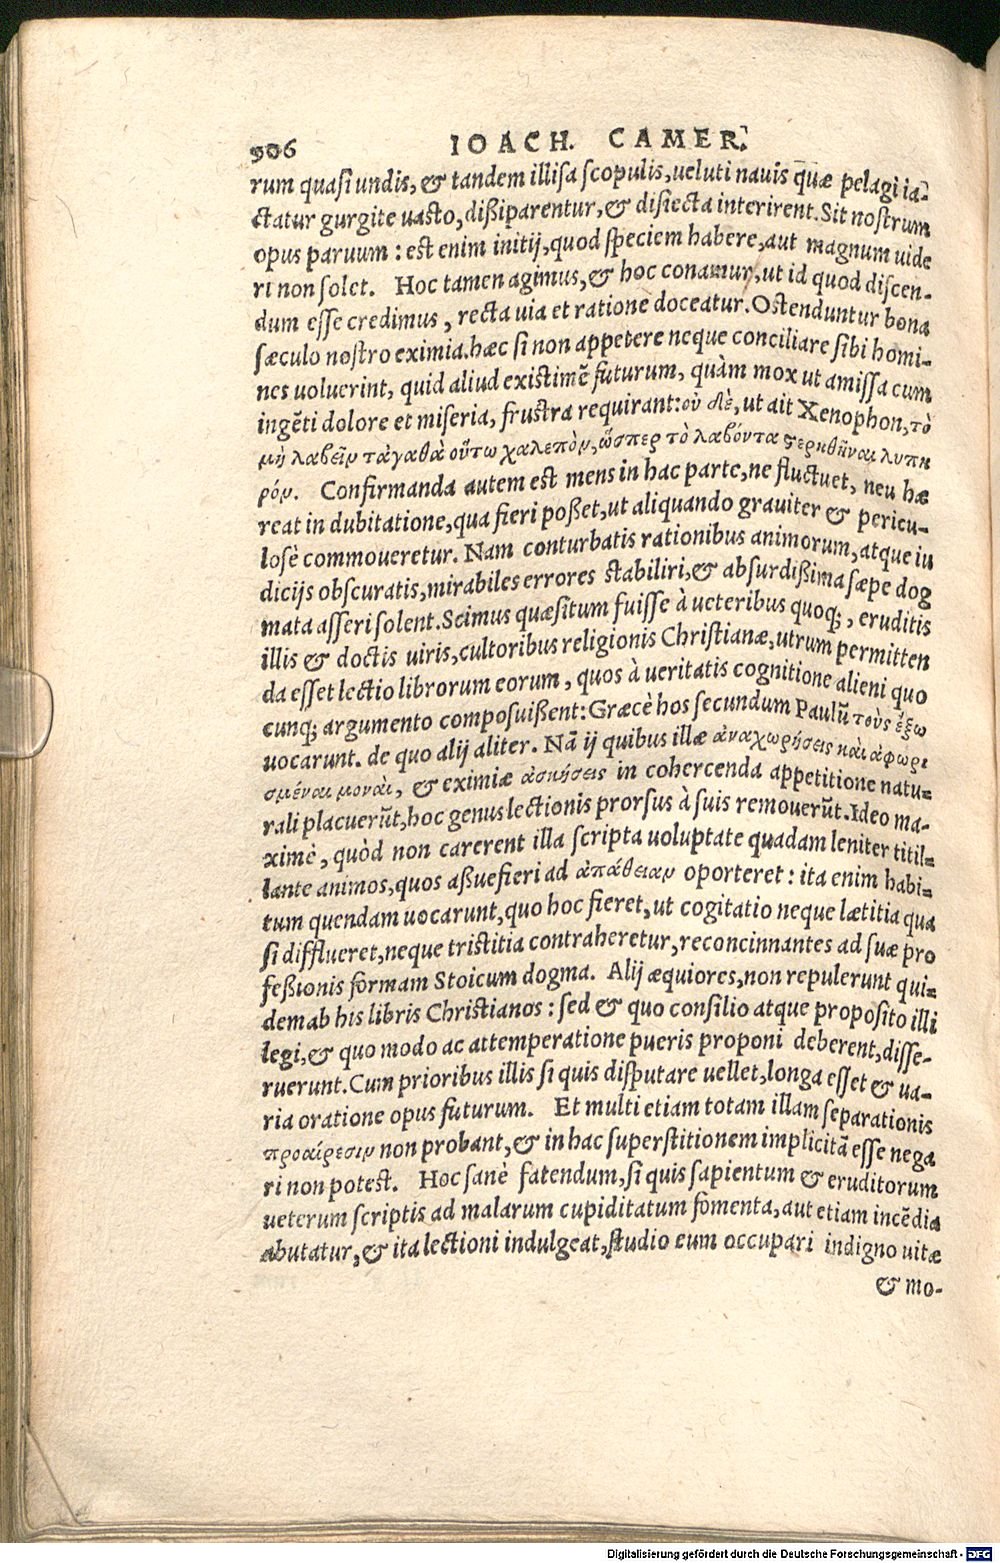 906 IOACH. CAMER.
rum quasi undis, & tandem illisa scopulis, ueluti nauis quæ pelagi ia-
ctatur gurgite uasto, dißiparentur, & disiecta interirent. Sit nostrum
opus paruum : est enim initij, quod speciem habere, aut magnum uide
ri non solet. Hoc tamen agimus, & hoc conamur, ut id quod discen-
dum esse credimus, recta uia et ratione doceatur. Ostenduntur bona
sæculo nostro eximia. hæc si non appetere neque conciliare sibi homi-
nes uoluerint, quid aliud existimē futurum, quàm mox ut amissa cum
ingēti dolore et miseria, frustra requirant: οὐ δὲ, ut ait Xenophon, τὸ
μὴ λαβεῖν τἀγαθὰ οὕτω χαλεπὸν, ὥσπερ τὸ λαβόντα στερηθῆναι λυπη
ρόν. Confirmanda autem est mens in hac parte, ne fluctuet, neu hæ
reat in dubitatione, qua fieri poßet, ut aliquando grauiter & pericu-
losè commoueretur. Nam conturbatis rationibus animorum, atque iu
dicijs obscuratis, mirabiles errores stabiliri, & absurdißima sæpe dog
mata asseri solent. Scimus quæsitum fuisse à ueteribus quoq;, eruditis
illis & doctis uiris, cultoribus religionis Christianæ, utrum permitten
da esset lectio librorum eorum, quos à ueritatis cognitione alieni quo
cunq; argumento composuißent: Græcè hos secundum Paulū τοὺς ἔξω
uocarunt. de quo alij aliter. Nā ij quibus illæ ἀναχωρήσεις καὶ ἀφωρι
σμέναι μοναὶ, & eximiæ ἀσκήσεις in cohercenda appetitione natu-
rali placuerūt, hoc genus lectionis prorsus à suis remouerūt. Ideo ma-
ximè, quòd non carerent illa scripta uoluptate quadam leniter titil-
lante animos, quos aßuefieri ad ἀπάθειαν oporteret : ita enim habi-
tum quendam uocarunt, quo hoc fieret, ut cogitatio neque lætitia qua
si difflueret, neque tristitia contraheretur, reconcinnantes ad suæ pro
feßionis formam Stoicum dogma. Alij æquiores, non repulerunt qui-
dem ab his libris Christianos : sed & quo consilio atque proposito illi
legi, & quo modo ac attemperatione pueris proponi deberent, disse-
ruerunt. Cum prioribus illis si quis disputare uellet, longa esset & ua-
ria oratione opus futurum. Et multi etiam totam illam separationis
προαίρεσιν non probant, & in hac superstitionem implicitā esse nega
ri non potest. Hoc sanè fatendum, si quis sapientum & eruditorum
ueterum scriptis ad malarum cupiditatum fomenta, aut etiam incēdia
abutatur, & ita lectioni indulgeat, studio eum occupari indigno uitæ
& mo-
Digitalisierung gefördert durch die Deutsche Forschungsgemeinschaft - DFG